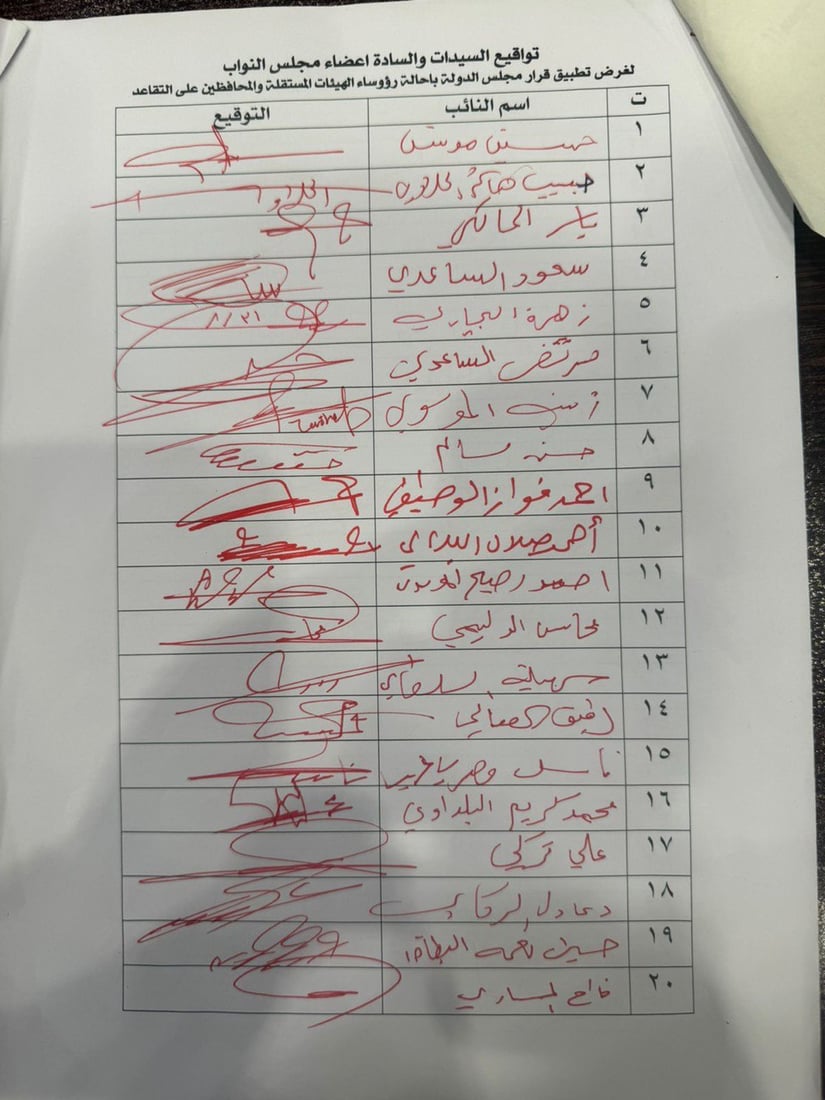 تواقيع السيدات والسادة اعضاء مجلس النواب
لغرض تطبيق قرار مجلس الدولة باحالة رؤوساء الهيئات المستقلة والمحافظين على التقاعد
ت اسم النائب التوقيع
١ حسين مونس
٢ حبيب هاشم الحلاوي
٣ ياسر المالكي
٤ سعود الساعدي
٥ زهرة البجاري ٨/٣١
٦ مرتضى الساعدي
٧ زينب الموسوي
٨ حسن سالم
٩ احمد فواز الوطيفي
١٠ أحمد صلال البدري
١١ احمد رحيم الموسوي
١٢ محاسن الدليمي
١٣ سهيلة السلطاني
١٤ رفيق الصالحي
١٥ باسل
١٦ محمد كريم البلداوي
١٧ علي تركي
١٨ د عادل الركابي
١٩ حسين نعمه البطاط
٢٠ فالح الساري